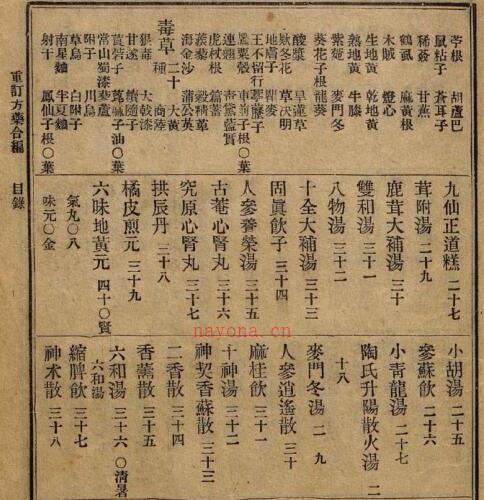 芩根 胡蘆巴
鼠粘子 蒼耳子
稀薟 甘蕉
鶴虱 麻黃根
木賊 燈心
生地黃 乾地黃
熟地黃 牛膝
紫菀 麥門冬
葵花子根 龍葵
酸漿 旱蓮草
欵冬花 草決明
地膚子 瞿麥
王不留行 葶藶子
罌粟殼 車前子根〇葉
連翹 靑黛藍實
虎杖根 萹蓄
蒺藜 穀精草
海金沙 蒲公英
毒草 二十 大黃
種 商陸
狼毒 大戟漆
甘遂 續隨子
莨菪子 蓖麻子油〇葉
常山蜀漆 藜蘆
附子 川烏
草烏 白附子
南星麯 半夏麯
射干 鳳仙子根〇葉
九仙正道糕 二十七
茸附湯 二十九
鹿茸大補湯 三十
雙和湯 三十一
八物湯 三十二
十全大補湯 三十三
固眞飮子 三十四
人參養榮湯 三十五
古菴心腎丸 三十六
究原心腎丸 三十七
拱辰丹 三十八
橘皮煎元 三十九
六味地黃元 四十〇賢
氣元〇八
味元〇金
小胡湯 二十五
參蘇飮 二十六
小靑龍湯 二十七
陶氏升陽散火湯 二
十八
麥門冬湯 二 九
人參逍遙散 三十
麻桂飮 三十一
十神湯 三十二
神契香蘇散 三十三
二香散 三十四
香薷散 三十五
六和湯 三十六〇淸暑
六和湯
縮脾飮 三十七
神朮散 三十八
重訂方藥合編 目錄
nayona.cn